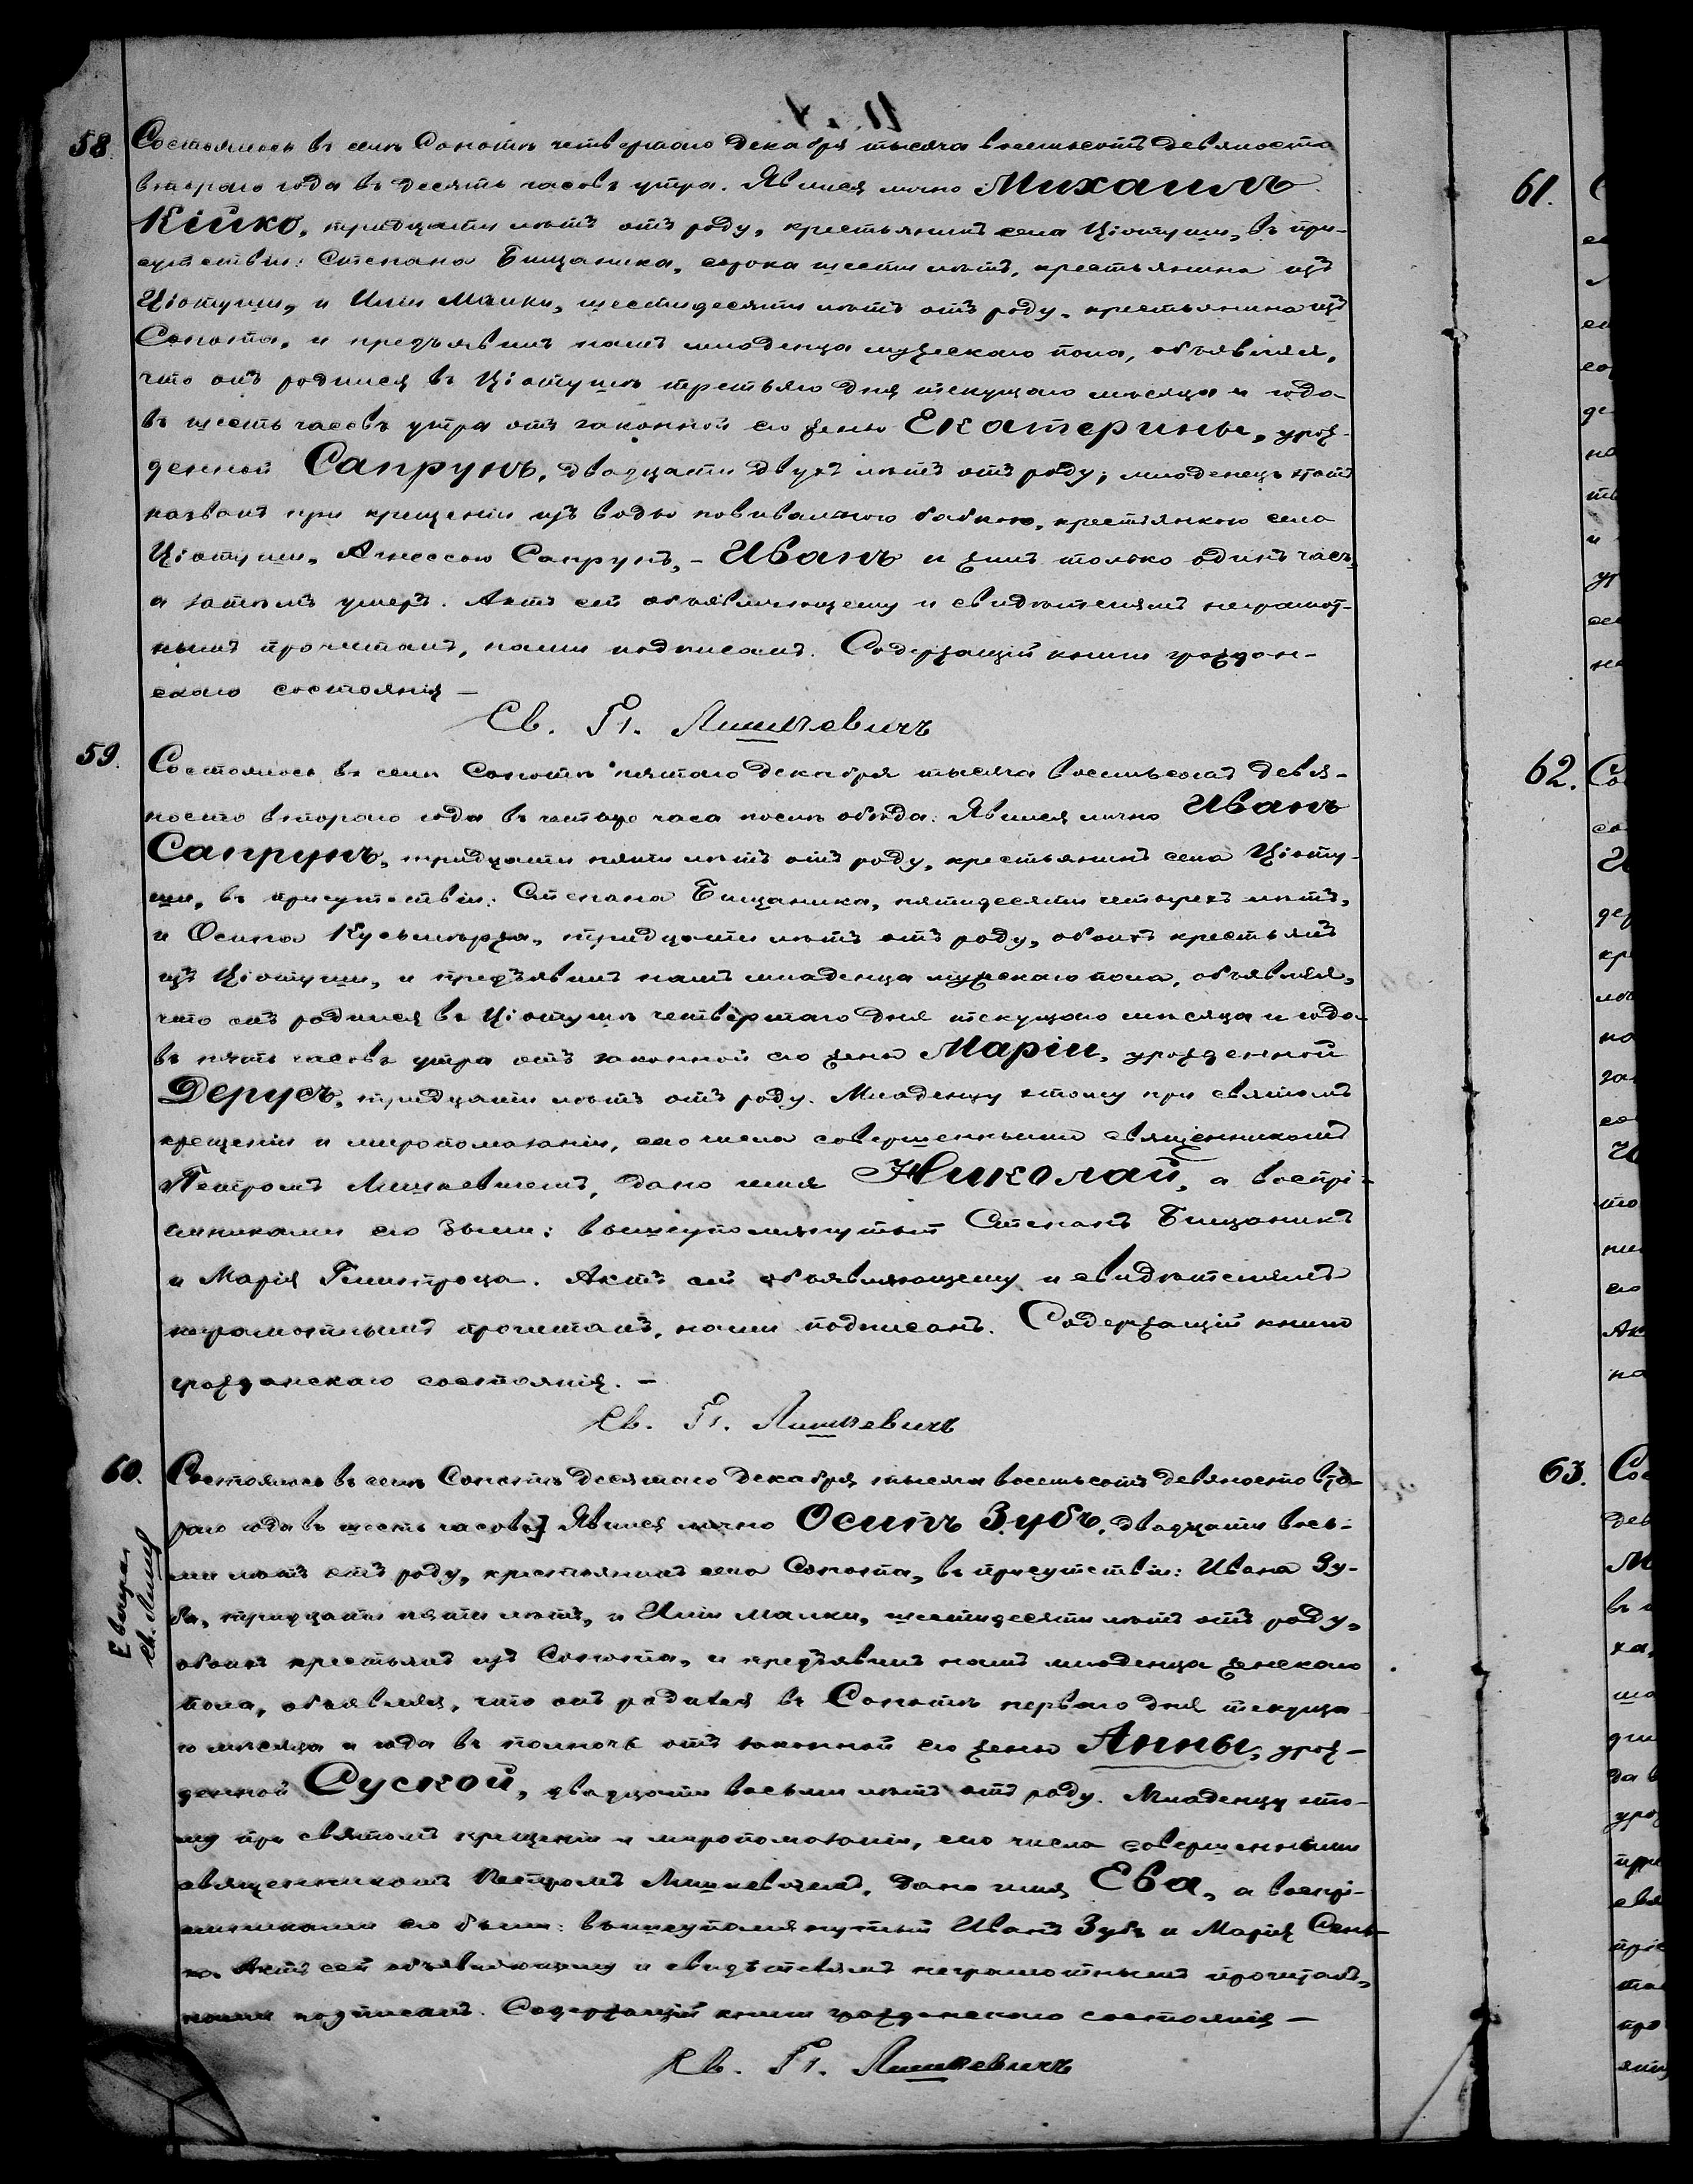 58. Состоялось въ селѣ Сопотѣ четвертаго Декабря тысяча восемьсотъ девяносто
втораго года въ десять часовъ утра. Явился лично Михаилъ
Кійко, тридцати лѣтъ отъ роду, крестьянинъ села Ціотуши, въ при-
сутствіи: Степана Бищаника, сорока шести лѣтъ, крестьянина изъ
Ціотуши, и Иліи Малки, шестидесяти лѣтъ отъ роду, крестьянина изъ
Сопота, и предъявилъ намъ младенца мужескаго пола, объявляя,
что онъ родился въ Ціотушѣ третьяго дня текущаго мѣсяца и года
въ шесть часовъ утра отъ законной его жены Екатерины, урож-
денной Сапрунъ, двадцати двухъ лѣтъ отъ роду; младенецъ этотъ
названъ при крещеніи изъ воды повивальною бабкою, крестьянкою села
Ціотуши, Агнессою Сапрунъ, - Иванъ и жилъ только одинъ часъ,
а затѣмъ умеръ. Актъ сей объявляющему и свидѣтелямъ неграмот-
нымъ прочитанъ, нами подписанъ. Содержащій книги граждан-
скаго состоянія —
Св. П. Лишкевичъ
59. Состоялось въ селѣ Сопотѣ пятаго Декабря тысяча восемьсотъ девя-
носто втораго года въ четыре часа послѣ обѣда. Явился лично Иванъ
Сапрунъ, тридцати пяти лѣтъ отъ роду, крестьянинъ села Ціоту-
ши, въ присутствіи: Степана Бищаника, пятидесяти четырехъ лѣтъ,
и Осипа тридцати лѣтъ отъ роду, обоихъ крестьянъ
изъ Ціотуши, и предъявилъ намъ младенца мужескаго пола, объявляя,
что онъ родился въ Ціотушѣ четвертаго дня текущаго мѣсяца и года
въ пять часовъ утра отъ законной его жены Маріи, урожденной
Дерусъ, тридцати лѣтъ отъ роду. Младенцу этому при святомъ
крещеніи и миропомазаніи, сего числа совершенными священникомъ
Петромъ Лишкевичемъ, дано имя Николай, а воспрі-
емниками его были: вышеупомянутый Степанъ Бищаникъ
и Марія Актъ сей объявляющему и свидѣтелямъ
неграмотнымъ прочитанъ, нами подписанъ. Содержащій книги
гражданскаго состоянія. —
Св. П. Лишкевичъ
60. Состоялось въ селѣ Сопотѣ десятаго Декабря тысяча восемьсотъ девяносто вто-
раго года въ шесть часовъ] Явился лично Осипъ Зубъ, двадцати вось-
ми лѣтъ отъ роду, крестьянинъ села Сопота, въ присутствіи: Ивана Зу-
ба, тридцати пяти лѣтъ, и Иліи Малки, шестидесяти лѣтъ отъ роду,
обоихъ крестьянъ изъ Сопота, и предъявилъ намъ младенца женскаго
пола, объявляя, что онъ родился въ Сопотѣ перваго дня текуща-
го мѣсяца и года въ полночь отъ законной его жены Анны, урож-
денной Суской, двадцати восьми лѣтъ отъ роду. Младенцу это-
му при святомъ крещеніи и миропомазаніи, сего числа совершенными
священникомъ Петромъ Лишкевичемъ, дано имя Ева, а воспрі-
емниками его были: вышеупомянутый Иванъ Зубъ и Марія Сень-
ко. Актъ сей объявляющему и свидѣтелямъ неграмотнымъ прочитанъ,
нами подписанъ. Содержащій книги гражданскаго состоянія —
Св. П. Лишкевичъ
[ вечера
Св. Лишк
61.
62. Со
63. Сос